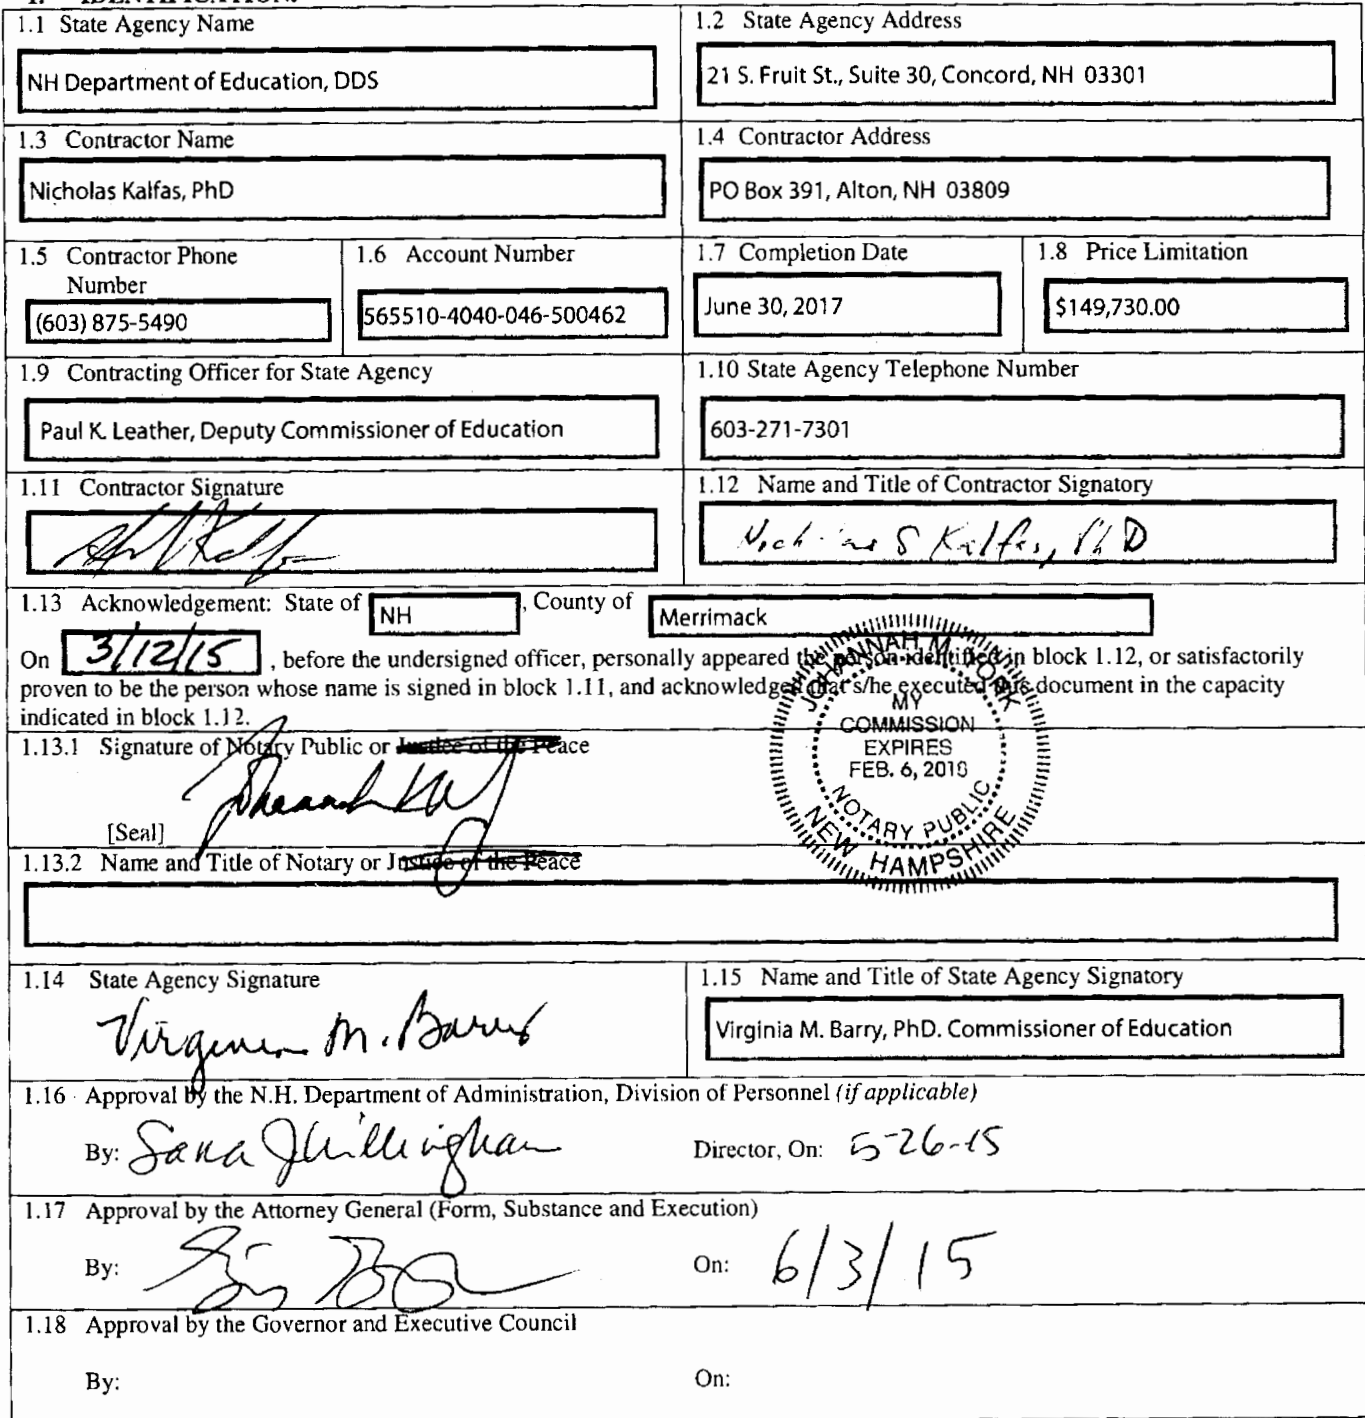 1. IDENTIFICATION.
1.1 State Agency Name
NH Department of Education, DDS
1.2 State Agency Address
21 S. Fruit St., Suite 30, Concord, NH 03301
1.3 Contractor Name
Nicholas Kalfas, PhD
1.4 Contractor Address
PO Box 391, Alton, NH 03809
1.5 Contractor Phone
Number
(603) 875-5490
1.6 Account Number
565510-4040-046-500462
1.7 Completion Date
June 30, 2017
1.8 Price Limitation
$149,730.00
1.9 Contracting Officer for State Agency
Paul K. Leather, Deputy Commissioner of Education
1.10 State Agency Telephone Number
603-271-7301
1.11 Contractor Signature
1.12 Name and Title of Contractor Signatory
Nicholas S Kalfas, PhD
1.13 Acknowledgement: State of NH, County of Merrimack
On 3/12/15, before the undersigned officer, personally appeared the person identified in block 1.12, or satisfactorily
proven to be the person whose name is signed in block 1.11, and acknowledged that s/he executed this document in the capacity
indicated in block 1.12.
JOHANNAH M. YORK
MY
COMMISSION
EXPIRES
FEB. 6, 201
NOTARY PUBLIC
NEW HAMPSHIRE
1.13.1 Signature of Notary Public or Justice of the Peace
[Seal]
1.13.2 Name and Title of Notary or Justice of the Peace
1.14 State Agency Signature
Virginia M. Barry
1.15 Name and Title of State Agency Signatory
Virginia M. Barry, PhD. Commissioner of Education
1.16 Approval by the N.H. Department of Administration, Division of Personnel (if applicable)
By: Sara J Willingham
Director, On: 5-26-15
1.17 Approval by the Attorney General (Form, Substance and Execution)
By:
On: 6/3/15
1.18 Approval by the Governor and Executive Council
By:
On: